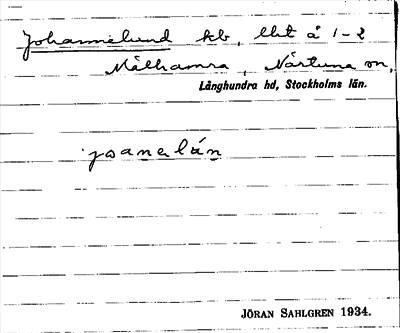 Johannelund kb, lht å 1-2
Målhamra, Närtuna sn,
Långhundra hd, Stockholms län.
joanelún
JÖRAN SAHLGREN 1934.